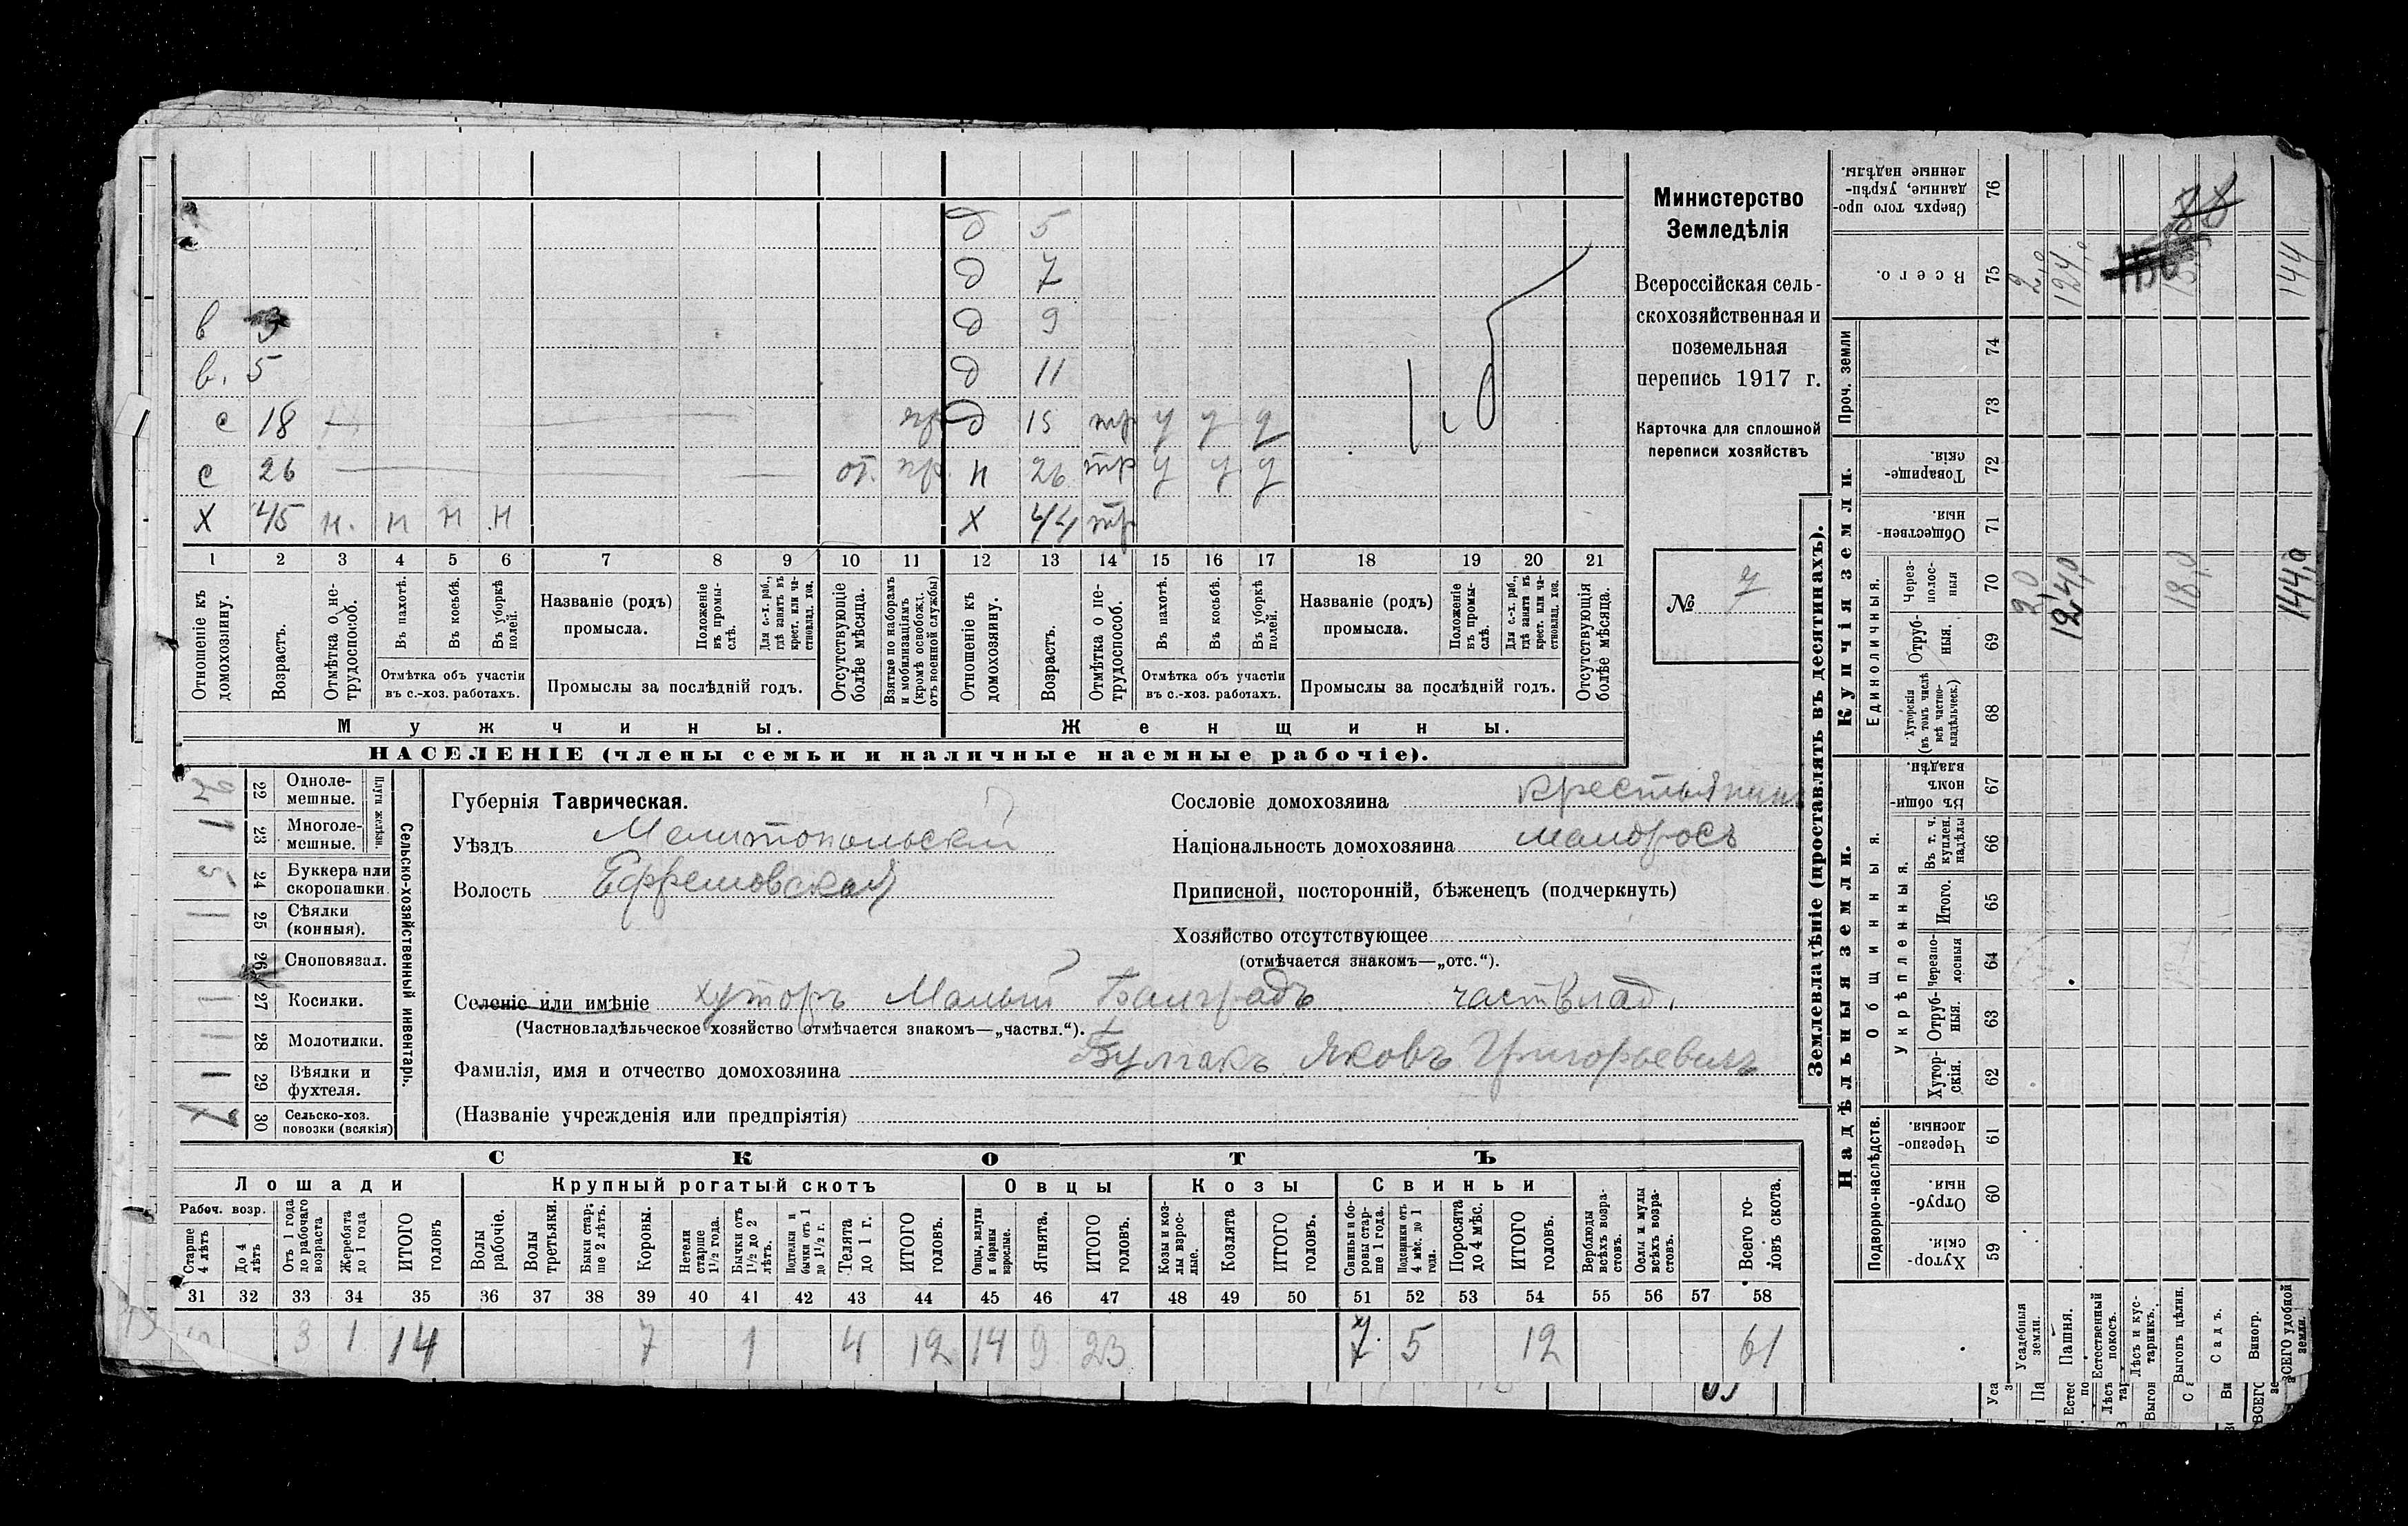 Министерство
Земледѣлія
Всероссійская сель-
скохозяйственная и
поземельная
перепись 1917 г.
Карточка для сплошной
переписи хозяйствъ
№ 7
д 5
д 7
в 3 д 9
в. 5 д 11
с 18 д 15 тр у у у
с 26 от. н 26 тр у у у
х 45 н. н н н х 44 тр
1 2 3 4 5 6 7 8 9 10 11 12 13 14 15 16 17 18 19 20 21
Отношеніе къ домохозяину.
Возрастъ.
Отмѣтка о не-трудоспособ.
Въ пахотѣ.
Въ косьбѣ.
Въ уборкѣ полей.
Отмѣтка объ участіи въ с.-хоз. работахъ.
Названіе (родъ) промысла.
Положеніе въ промы-слѣ.
Для с.-х. раб., гдѣ занятъ въ крест. или ча-стновлад. хоз.
Промыслы за послѣдній годъ.
Отсутствующіе болѣе мѣсяца.
Взятые по наборамъ и мобилизаціямъ (кромѣ освобожд. отъ военной службы)
Отношеніе къ домохозяину.
Возрастъ.
Отмѣтка о не-трудоспособ.
Въ пахотѣ.
Въ косьбѣ.
Въ уборкѣ полей.
Отмѣтка объ участіи въ с.-хоз. работахъ.
Названіе (родъ) промысла.
Положеніе въ промы-слѣ.
Для с.-х. раб., гдѣ занята въ крест. или ча-стновлад. хоз.
Промыслы за послѣдній годъ.
Отсутствующія болѣе мѣсяца.
Мужчины. Женщины.
НАСЕЛЕНІЕ (члены семьи и наличные наемные рабочіе).
Сельско-хозяйственный инвентарь.
Плуги желѣзн.
22 Одноле-мешные. 2
23 Многоле-мешные. 1
24 Буккера или скоропашки
25 Сѣялки (конныя). 1
26 Сноповязал.
27 Косилки. 1
28 Молотилки. 1
29 Вѣялки и фухтеля. 1
30 Сельско-хоз. повозки (всякія)
Губернія Таврическая.
Уѣздъ Мелитопольскій
Волость Ефремовская
Селеніе или имѣніе хуторъ Малый Балградъ частвлад.
(Частновладѣльческое хозяйство отмѣчается знакомъ—„частвл.“).
Фамилія, имя и отчество домохозяина Булгакъ Яковъ Григорьевичъ
(Названіе учрежденія или предпріятія)
Сословіе домохозяина крестьянинъ
Національность домохозяина малоросъ
Приписной, посторонній, бѣженецъ (подчеркнуть)
Хозяйство отсутствующее
(отмѣчается знакомъ—„отс.“).
СКОТЪ
Лошади Крупный рогатый скотъ Овцы Козы Свиньи
Рабоч. возр.
Старше 4 лѣтъ
До 4 лѣтъ
Отъ 1 года до рабочаго возраста
Жеребята до 1 года
ИТОГО головъ
Волы рабочіе.
Волы третьяки.
Быки стар-ше 2 лѣтъ.
Коровы.
Нетели старше 1½ года.
Бычки отъ 1½ до 2 лѣтъ.
Подтелки и бычки отъ 1 до 1½ г.
Телята до 1 г.
ИТОГО головъ.
Овцы, валухи и бараны взрослые.
Ягнята.
ИТОГО головъ.
Козы и коз-лы взрос-лые.
Козлята
ИТОГО головъ.
Свиньи и бо-ровы стар-ше 1 года.
Подсвинки отъ 4 мѣс. до 1 года.
Поросята до 4 мѣс.
ИТОГО головъ.
Верблюды всѣхъ возра-стовъ.
Ослы и мулы всѣхъ возра-стовъ.
Всего го-ловъ скота.
31 32 33 34 35 36 37 38 39 40 41 42 43 44 45 46 47 48 49 50 51 52 53 54 55 56 57 58
3 1 14 7 1 4 12 14 9 23 7. 5 12 61
Землевладѣніе (проставлять въ десятинахъ).
Надѣльныя земли. Купчія земли. Проч. земли
Подворно-наслѣдств.
Общинныя.
Укрѣпленныя.
Единоличныя.
59 Хутор-скія.
60 Отруб-ныя.
61 Черезпо-лосныя.
62 Хутор-скія.
63 Отруб-ныя.
64 Черезпо-лосныя
65 Итого.
66 Въ т. ч. куплен. надѣлы
67 Въ общин-номъ владѣн.
68 Хуторскія (въ томъ числѣ всѣ частно-владѣльческ.)
69 Отруб-ныя.
70 Через-полос-ныя
71 Обществен-ныя.
72 Товарище-скія.
73
74
75 Всего.
76 Сверхъ того про-данные, укрѣп-ленные надѣлы.
Усадебныя земли. 2,0 2,0
Пашня. 124,0 124,0
Естественный покосъ.
Лѣсъ и кус-тарникъ.
Выгонъ цѣлин. 18,0
Садъ.
Виногр.
ВСЕГО удобной земли. 144,0 144